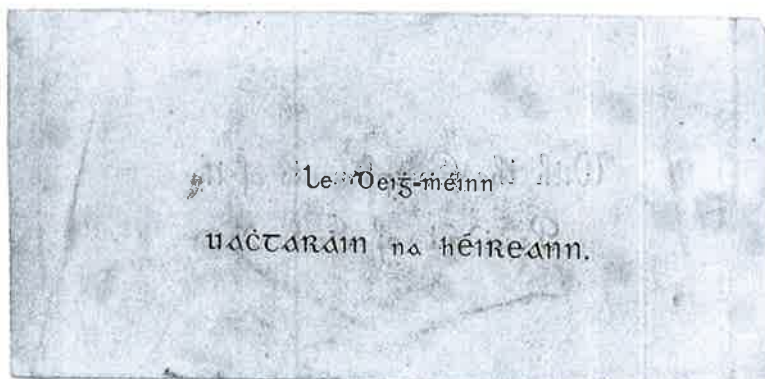 Le Deiġ-ṁéinn
Uaċtaráin na hÉireann.